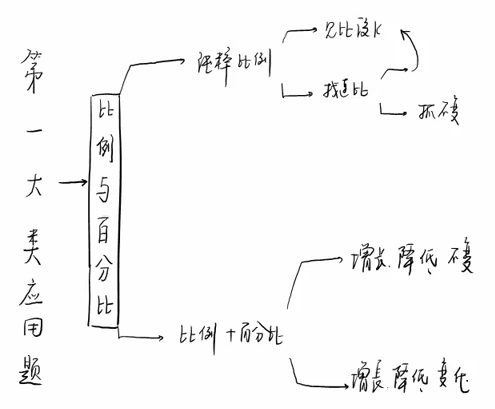 第一大类应用题
比例与百分比
纯粹比例
见比设K
找连比
抓不变
比例+百分比
增长.降低 不变
增长.降低 变化